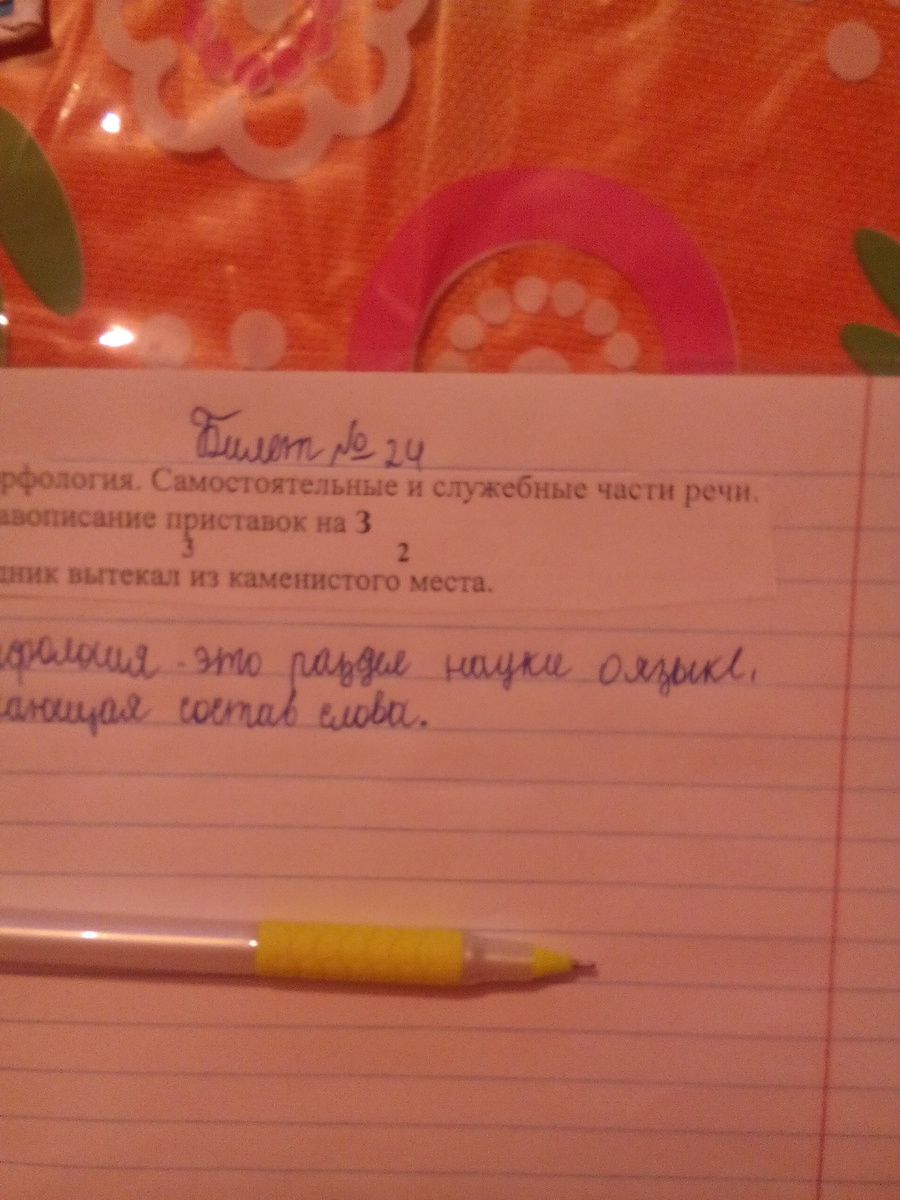 Билет № 24
рфология. Самостоятельные и служебные части речи.
авописание приставок на З
3 2
дник вытекал из каменистого места.
рфология - это раздел науки о языке,
чающая состав слова.